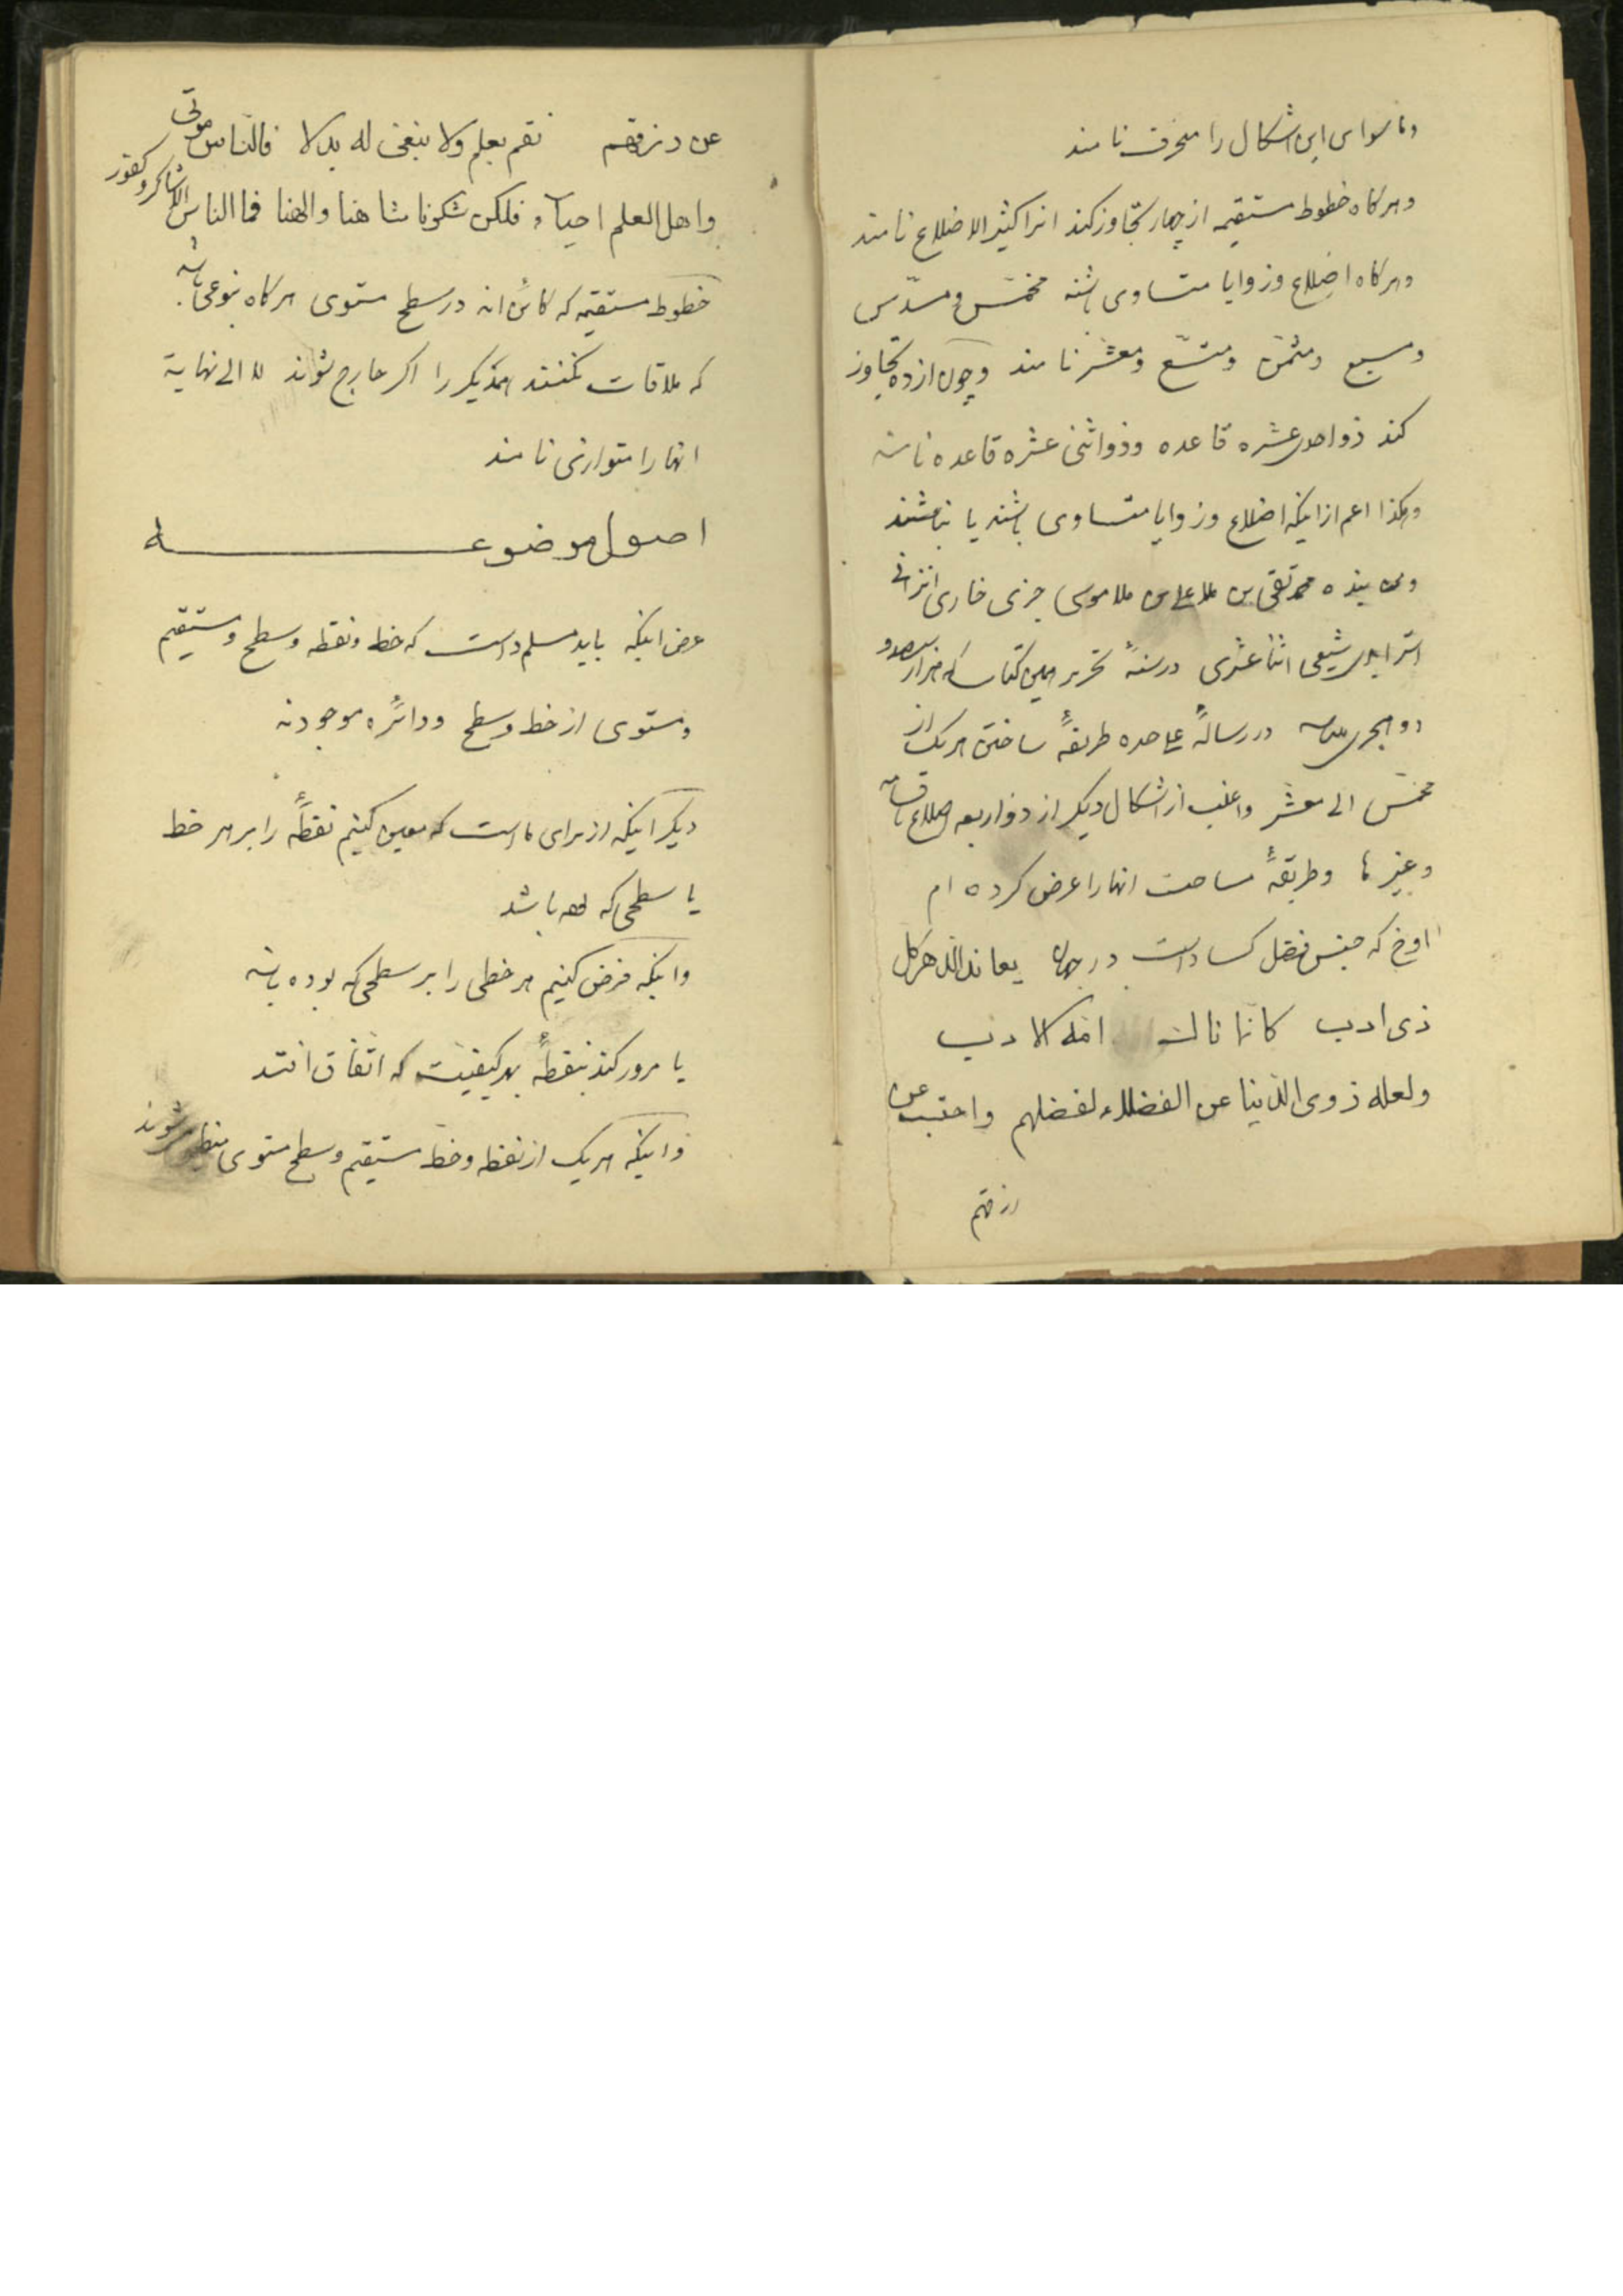 و ما سوای این اشکال را منحرف نامند
و هرگاه خطوط مستقیمه از چهار تجاوز کند انرا کثیر الاضلاع نامند
و هرگاه اضلاع و زوایا متساوی باشند مخمّس و مسدّس
و مسبع و مثمّن و متسّع و معشّر نامند و چون از ده تجاوز
کند ذو احدی عشره قاعده و ذو اثنی عشره قاعده نامند
و هکذا اعم از اینکه اضلاع و زوایا متساوی باشند یا نباشند
و بنده محمد تقی بن ملا علی بن ملا موسی
شیعی اثنا عشری در سنهٔ تحریر همین کتاب که هزار
در رسالهٔ علی حده طریقهٔ ساختن هر یک از
مخمّس الی معشّر و اغلب از اشکال دیگر از ذو اربعه اضلاع
و غیرها و طریقهٔ مساحت انها را عرض کرده ام
که جنس فضل کساد است در یعاند الدهر کل
ذی ادب کانما ناک امه الادب
ولعله ذوی الدنیا عن الفضلاء لفضلهم واحتجب عن
رزقهم
عن رزقهم نقم بعلم ولا نبغی له بدلا فالناس موتی
واهل العلم احیاء فلکن شکونا هنا والهنا فما الناس الا شاکر و کفور
خطوط مستقیمه که کائن اند در سطح مستوی هرگاه بنوعی باشد
که ملاقات نکنند همدیگر را اگر خارج شوند لا الی نهایة
انها را متوازی نامند
اصول موضوعه
عرض اینکه باید مسلم داشت که خط و نقطه و سطح و مستقیم
و مستوی از خط و سطح و دائره موجودند
دیگر اینکه از برای ما است که معین کنیم نقطهٔ را بر هر خط
یا سطحی که باشد
و اینکه فرض کنیم هر خطی را بر سطحی که بوده باشد
یا مرور کند بنقطهٔ بهر کیفیت که اتّفاق افتد
و اینکه هر یک از نقطه و خط مستقیم و سطح مستوی منطبق شوند